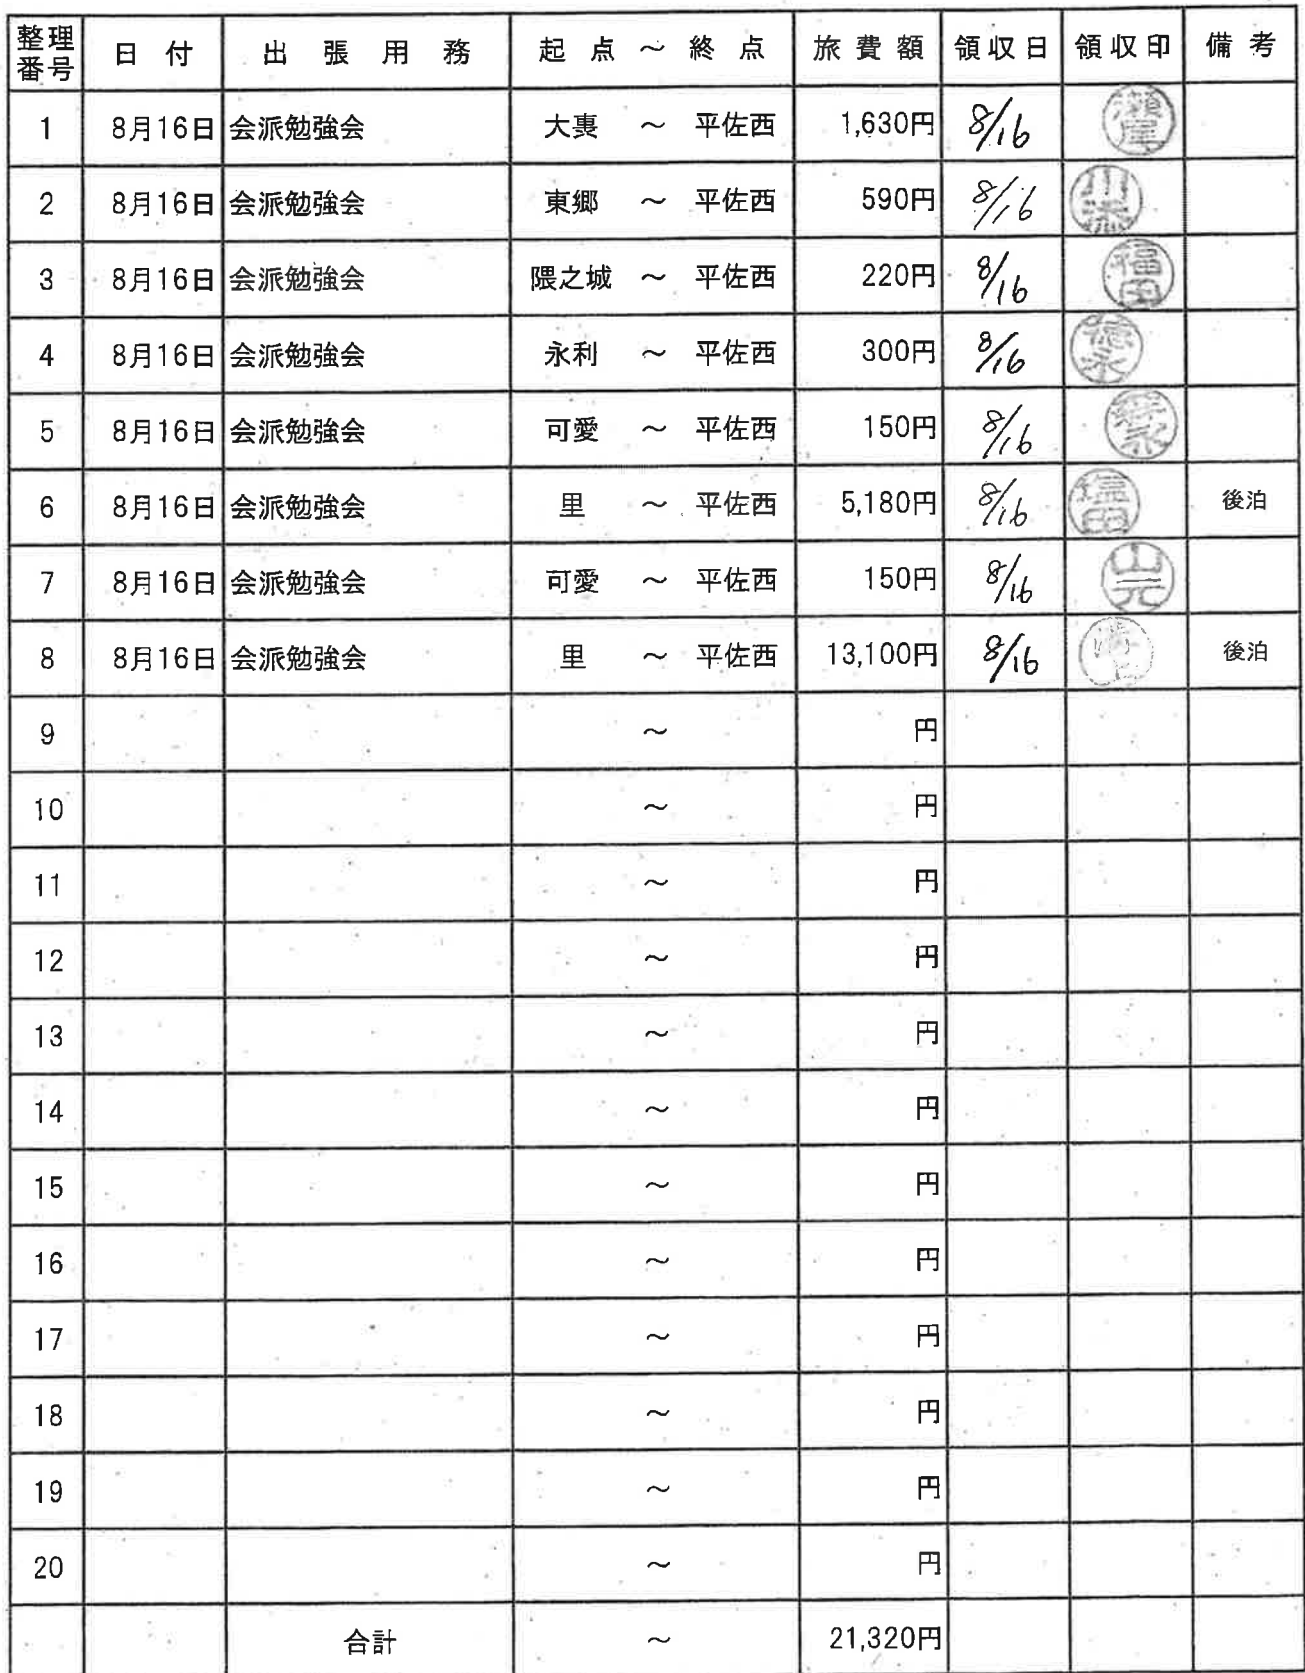 整理番号 日付 出張用務 起点～終点 旅費額 領収日 領収印 備考
1 8月16日 会派勉強会 大裏 ～ 平佐西 1,630円 8/16 瀬尾
2 8月16日 会派勉強会 東郷 ～ 平佐西 590円 8/16 川添
3 8月16日 会派勉強会 隈之城 ～ 平佐西 220円 8/16 福田
4 8月16日 会派勉強会 永利 ～ 平佐西 300円 8/16 徳永
5 8月16日 会派勉強会 可愛 ～ 平佐西 150円 8/16
6 8月16日 会派勉強会 里 ～ 平佐西 5,180円 8/16 塩田 後泊
7 8月16日 会派勉強会 可愛 ～ 平佐西 150円 8/16 山元
8 8月16日 会派勉強会 里 ～ 平佐西 13,100円 8/16 後泊
9 ～ 円
10 ～ 円
11 ～ 円
12 ～ 円
13 ～ 円
14 ～ 円
15 ～ 円
16 ～ 円
17 ～ 円
18 ～ 円
19 ～ 円
20 ～ 円
合計 ～ 21,320円